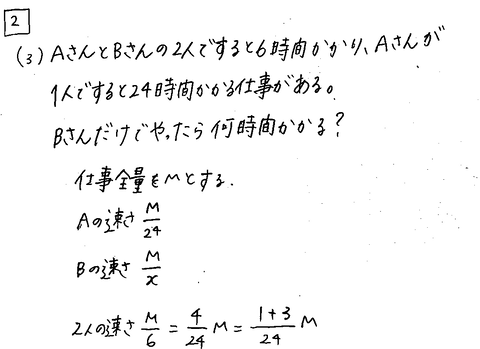 2
(3) AさんとBさんの2人ですると6時間かかり、Aさんが
1人ですると24時間かかる仕事がある。
Bさんだけでやったら何時間かかる?
仕事全量をMとする.
Aの速さ M/24
Bの速さ M/x
2人の速さ M/6 = 4/24 M = 1+3/24 M